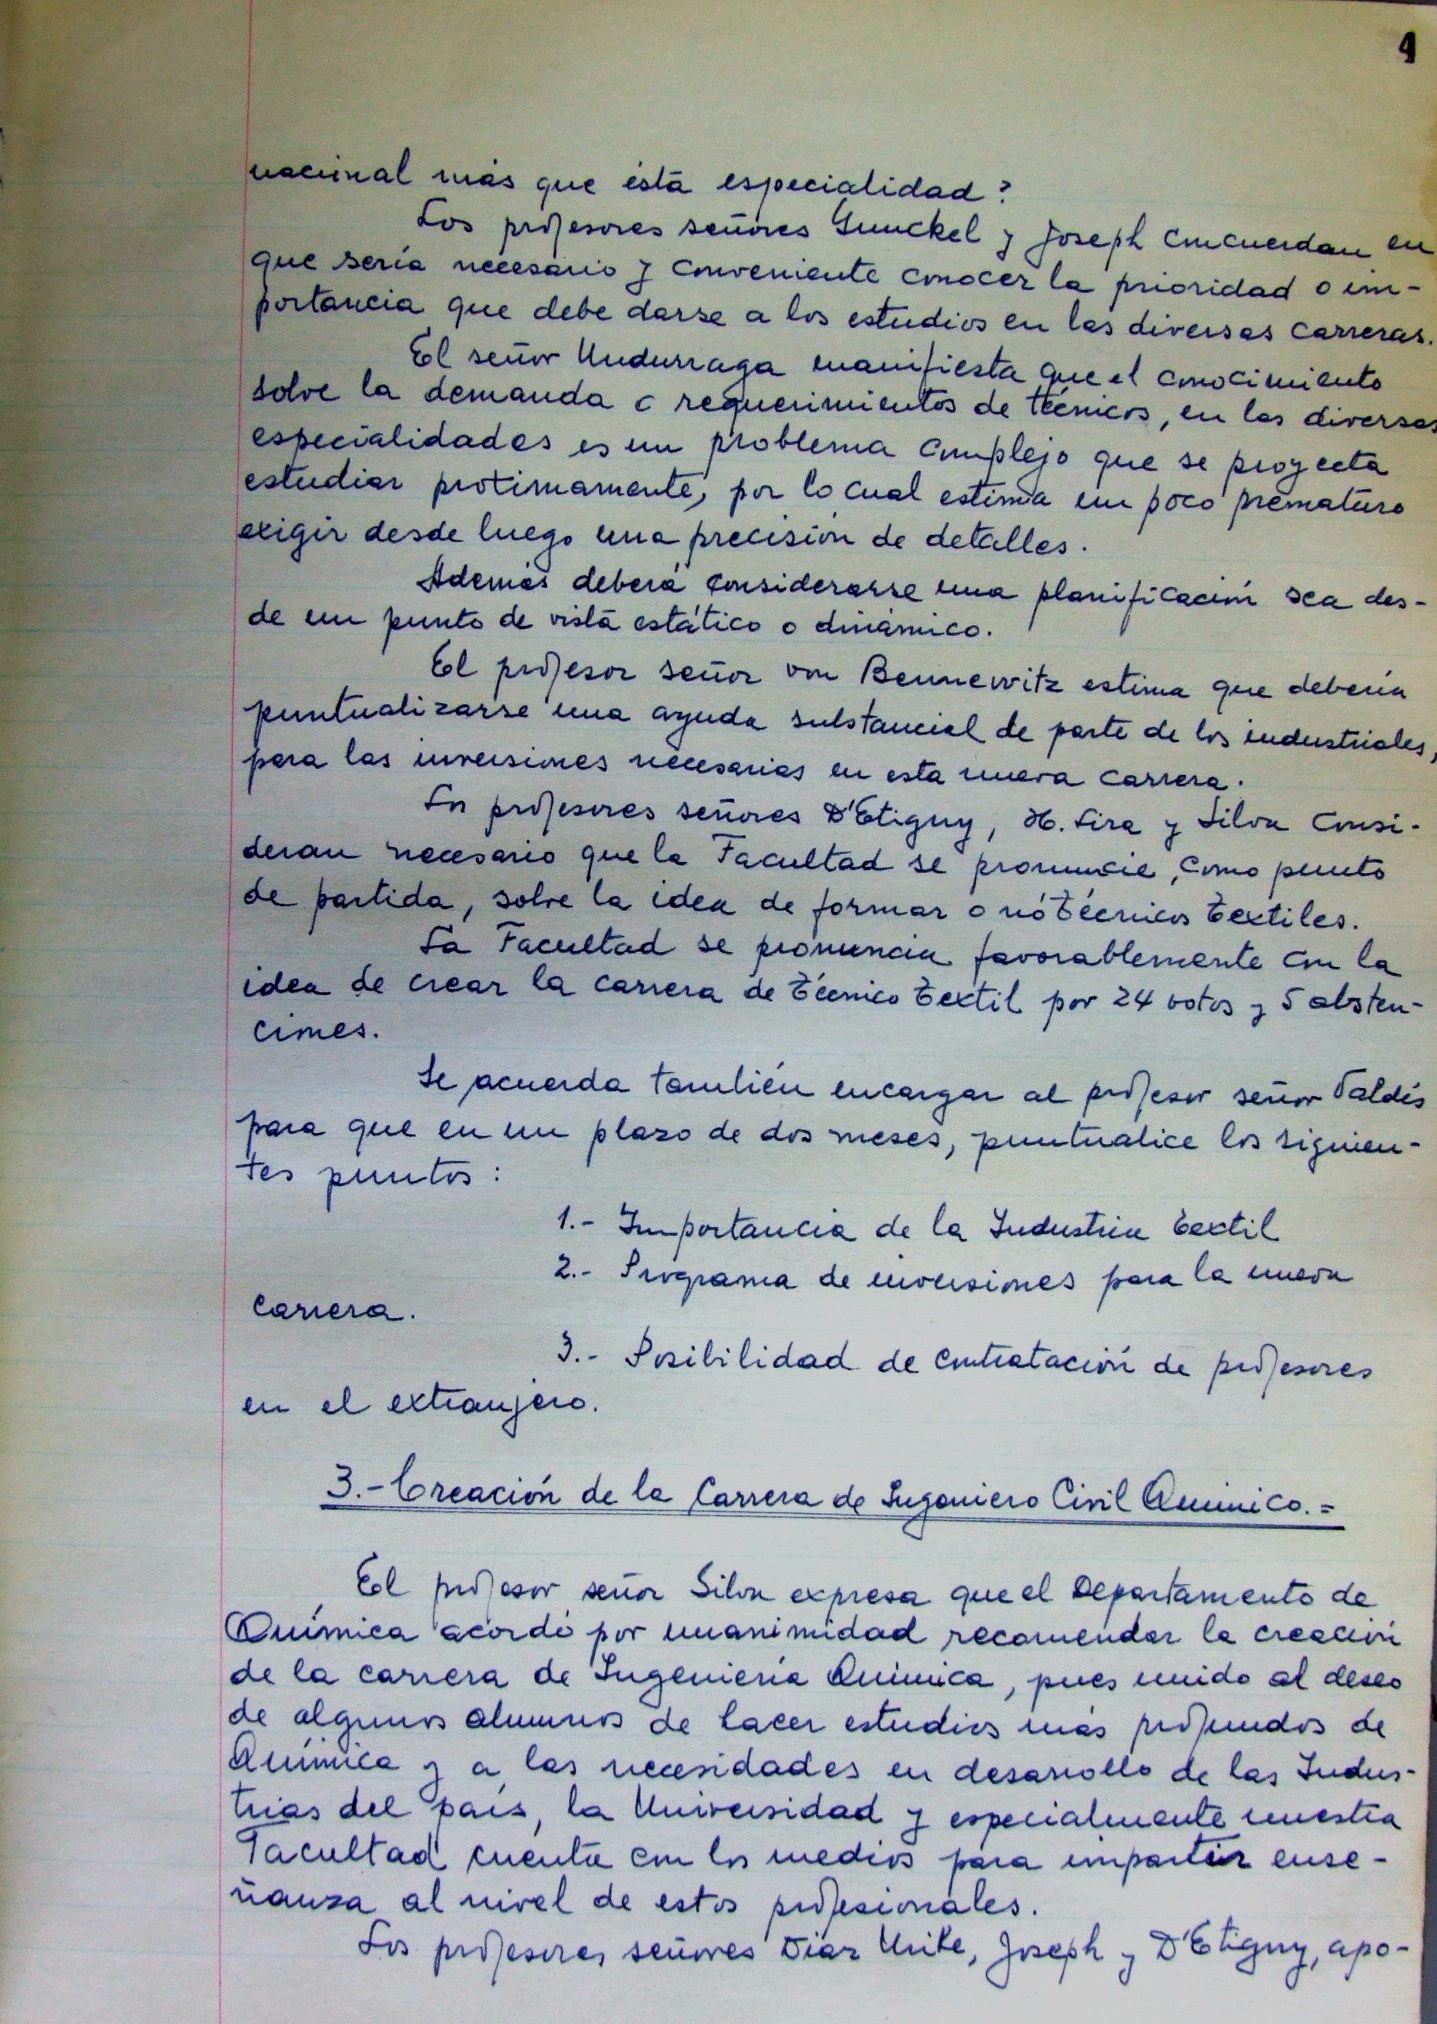 4
nacional más que ésta especialidad?
Los profesores señores Gunckel y Joseph concuerdan en
que sería necesario y conveniente conocer la prioridad o im-
portancia que debe darse a los estudios en las diversas carreras.
El señor Undurraga manifiesta que el conocimiento
sobre la demanda o requerimientos de técnicos, en las diversas
especialidades es un problema complejo que se proyecta
estudiar próximamente, por lo cual estima un poco prematuro
exigir desde luego una precisión de detalles.
Además deberá considerarse una planificación sea des-
de un punto de vista estático o dinámico.
El profesor señor von Bennewitz estima que debería
puntualizarse una ayuda substancial de parte de los industriales,
para las inversiones necesarias en esta nueva carrera.
Los profesores señores D'Etigny, H. Lira y Silva consi-
deran necesario que la Facultad se pronuncie, como punto
de partida, sobre la idea de formar o nó técnicos textiles.
La Facultad se pronuncia favorablemente con la
idea de crear la carrera de técnico textil por 24 votos y 5 absten-
ciones.
Se acuerda también encargar al profesor señor Valdés
para que en un plazo de dos meses, puntualice los siguien-
tes puntos:
1.- Importancia de la Industria textil
2.- Programa de inversiones para la nueva
carrera.
3.- Posibilidad de contratación de profesores
en el extranjero.
3.- Creación de la Carrera de Ingeniero Civil Químico.=
El profesor señor Silva expresa que el Departamento de
Química acordó por unanimidad recomendar la creación
de la carrera de Ingeniería Química, pues unido al deseo
de algunos alumnos de hacer estudios más profundos de
Química y a las necesidades en desarrollo de las Indus-
trias del país, la Universidad y especialmente nuestra
Facultad cuenta con los medios para impartir ense-
ñanza al nivel de estos profesionales.
Los profesores señores Díaz Uribe, Joseph y D'Etigny, apo-